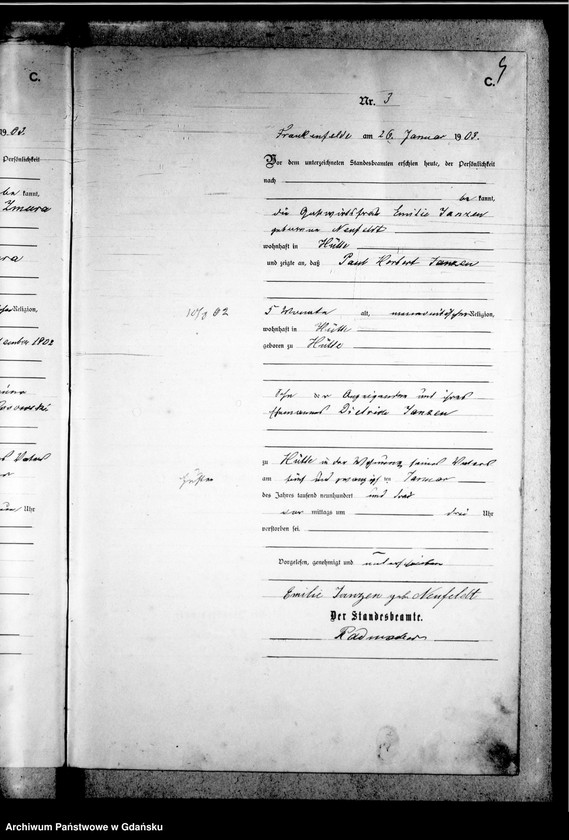 C.
19 03.
Persönlichkeit
be kannt,
Zmura
Religion,
1902
Uhr
C. 9
Nr. 3
Frankenfelde am 26. Januar 1903.
Vor dem unterzeichneten Standesbeamten erschien heute, der Persönlichkeit
nach
be kannt,
die Gastwirtsfrau Emilie Janzen
geborene Neufeldt
wohnhaft in Hütte
und zeigte an, daß Paul Herbert Janzen
10/8 02
5 Monate alt, mennonitischer Religion,
wohnhaft in Hütte
geboren zu Hütte
Sohn der Anzeigenden und ihres
Ehemannes Dietrich Janzen
zu Hütte in der Wohnung seines Vaters
am fünf und zwanzigsten Januar
des Jahres tausend neunhundert und drei
vor mittags um drei Uhr
verstorben sei.
Vorgelesen, genehmigt und unterschrieben
Emilie Janzen geb Neufeldt
Der Standesbeamte.
Radmacher
Archiwum Państwowe w Gdańsku